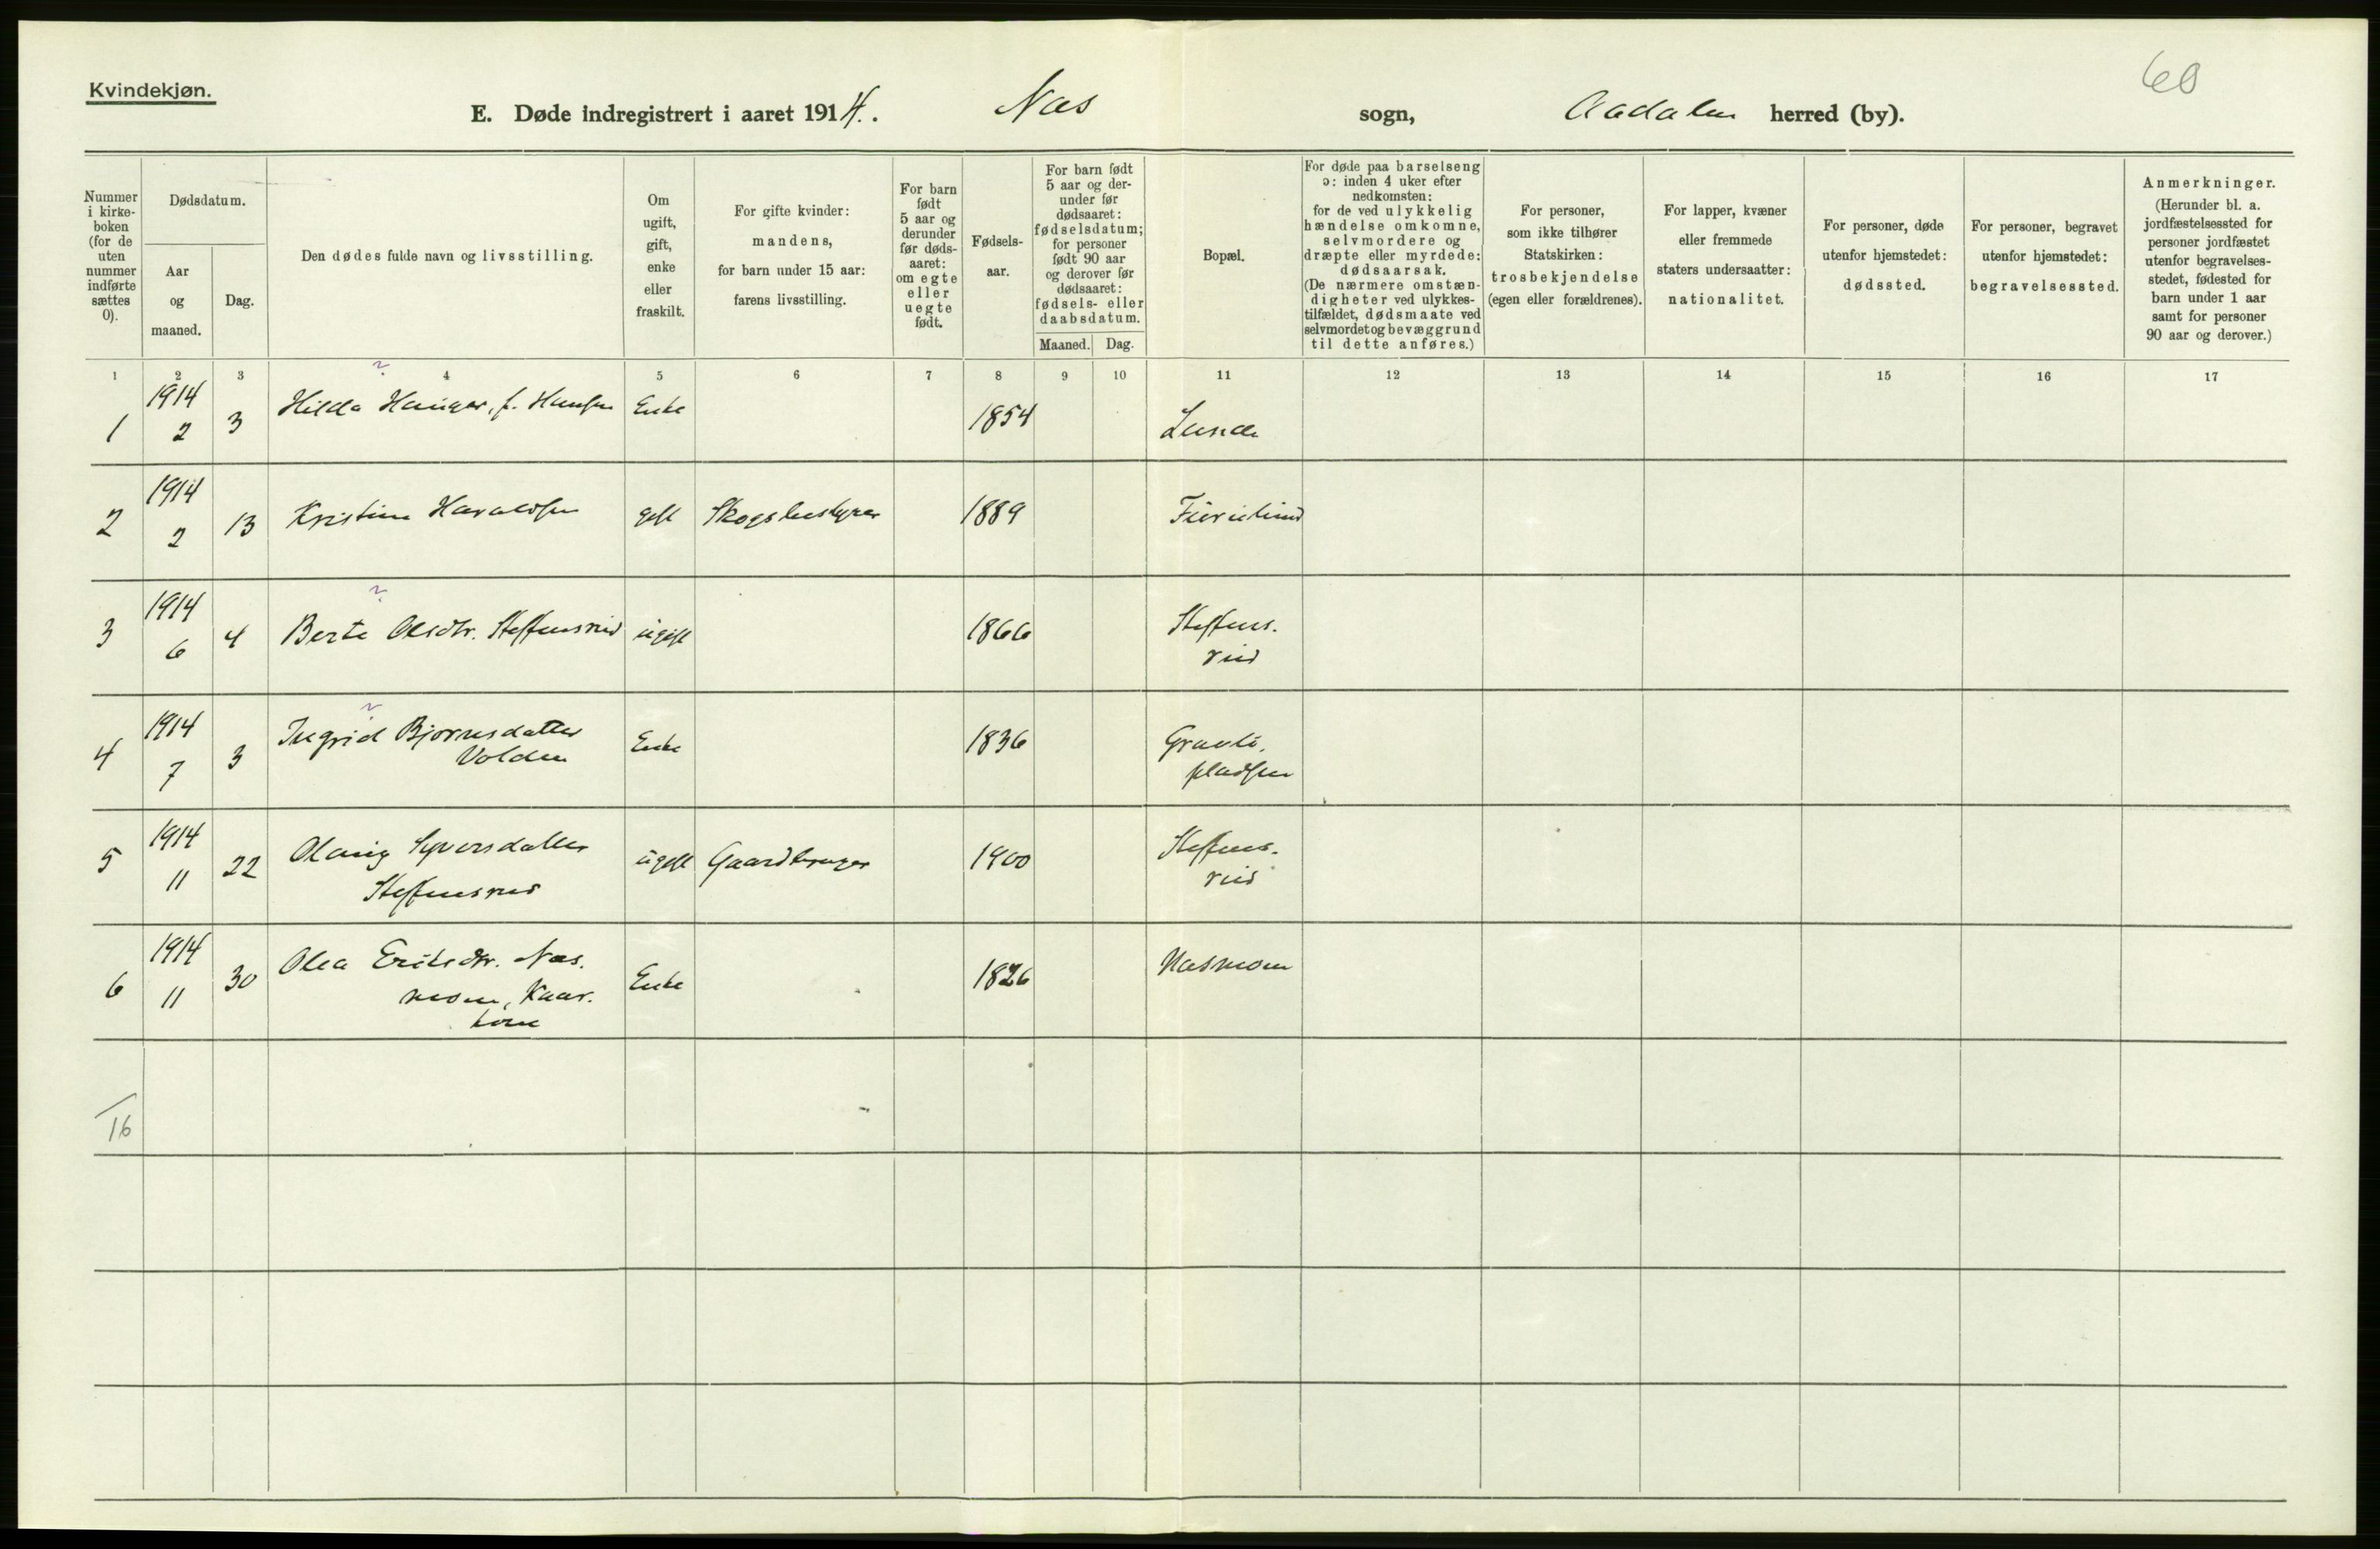 Kvindekjøn.
60
E. Døde indregistrert i aaret 1914. Næs sogn, Aadalen herred (by).
Nummer
i kirke-
boken
(for de
uten
nummer
indførte
sættes
0).
Dødsdatum.
Aar
og
maaned.
Dag.
Den dødes fulde navn og livsstilling.
Om
ugift,
gift,
enke
eller
fraskilt.
For gifte kvinder:
mandens,
for barn under 15 aar:
farens livsstilling.
For barn
født
5 aar og
derunder
før døds-
aaret:
om egte
eller
uegte
født.
Fødsels-
aar.
For barn født
5 aar og der-
under før
dødsaaret:
fødselsdatum;
for personer
født 90 aar
og derover før
dødsaaret:
fødsels- eller
daabsdatum.
Maaned. Dag.
Bopæl.
For døde paa barselseng
ɔ: inden 4 uker efter
nedkomsten:
for de ved ulykkelig
hændelse omkomne,
selvmordere og
dræpte eller myrdede:
dødsaarsak.
(De nærmere omstæn-
digheter ved ulykkes-
tilfældet, dødsmaate ved
selvmordet og bevæggrund
til dette anføres.)
For personer,
som ikke tilhører
Statskirken:
trosbekjendelse
(egen eller forældrenes).
For lapper, kvæner
eller fremmede
staters undersaatter:
nationalitet.
For personer, døde
utenfor hjemstedet:
dødssted.
For personer, begravet
utenfor hjemstedet:
begravelsessted.
Anmerkninger.
(Herunder bl. a.
jordfæstelsessted for
personer jordfæstet
utenfor begravelses-
stedet, fødested for
barn under 1 aar
samt for personer
90 aar og derover.)
1 2 3 4 5 6 7 8 9 10 11 12 13 14 15 16 17
1 1914 2 3 Hilda f. Hansen Enke 1854 Lunde
2 1914 2 13 Kristine Haraldsen gift Skogbestyrer 1889 Furulund
3 1914 6 4 Berte Olsdtr. Steffensrud ugift 1866 Steffens-
rud
4 1914 7 3 Ingrid Bjørnsdatter
Volden Enke 1836 Gravli-
pladsen
5 1914 11 22 Olaug Syversdatter
Steffensrud ugift Gaardbruger 1900 Steffens-
rud
6 1914 11 30 Olea Eriksdtr. Næs-
moen, Kaar-
kone Enke 1826 Næsmoen
16